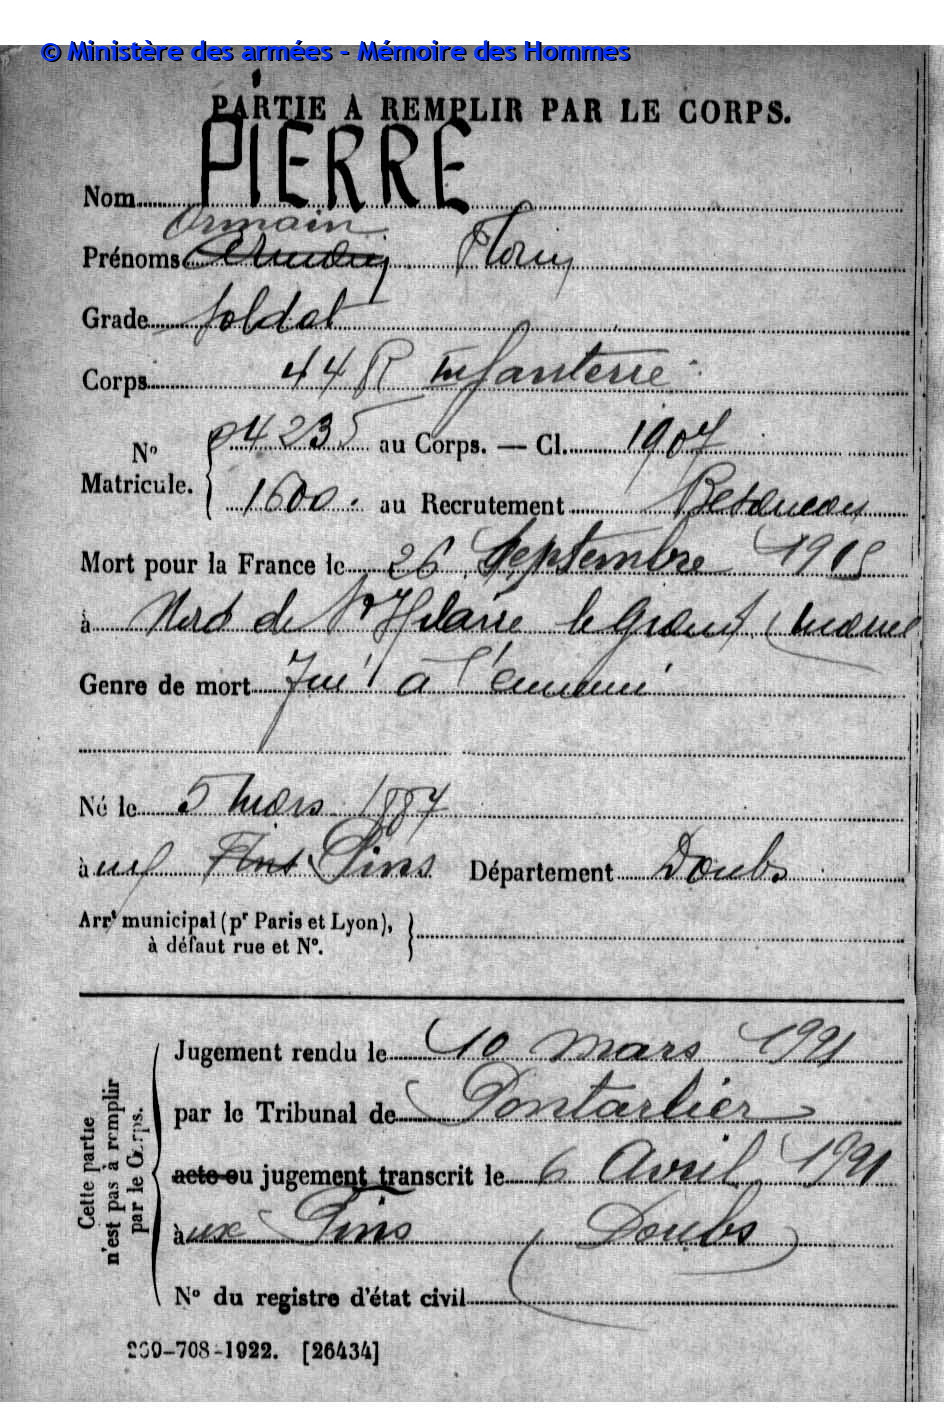 © Ministère des armées - Mémoire des Hommes
PARTIE A REMPLIR PAR LE CORPS.
Nom PIERRE
Ormain
Prénoms Floriy
Grade Soldat
Corps 44 R Infanterie
Nº Matricule. { 04235 au Corps. — Cl. 1907
1600. au Recrutement Besancon
Mort pour la France le 26 Septembre 1915
à Nord de St Hilaire le Grand (Marne
Genre de mort Tué à l'ennemi
Né le 5 Mars 1887
à ux Fins Fins Département Doubs
Arrt municipal (pr Paris et Lyon),
à défaut rue et Nº. }
Cette partie n'est pas à remplir par le Corps. {
Jugement rendu le 10 mars 1921
par le Tribunal de Pontarlier
acte ou jugement transcrit le 6 Avril 1921
à ux Fins (Doubs)
Nº du registre d'état civil
260-708-1922. [26434]